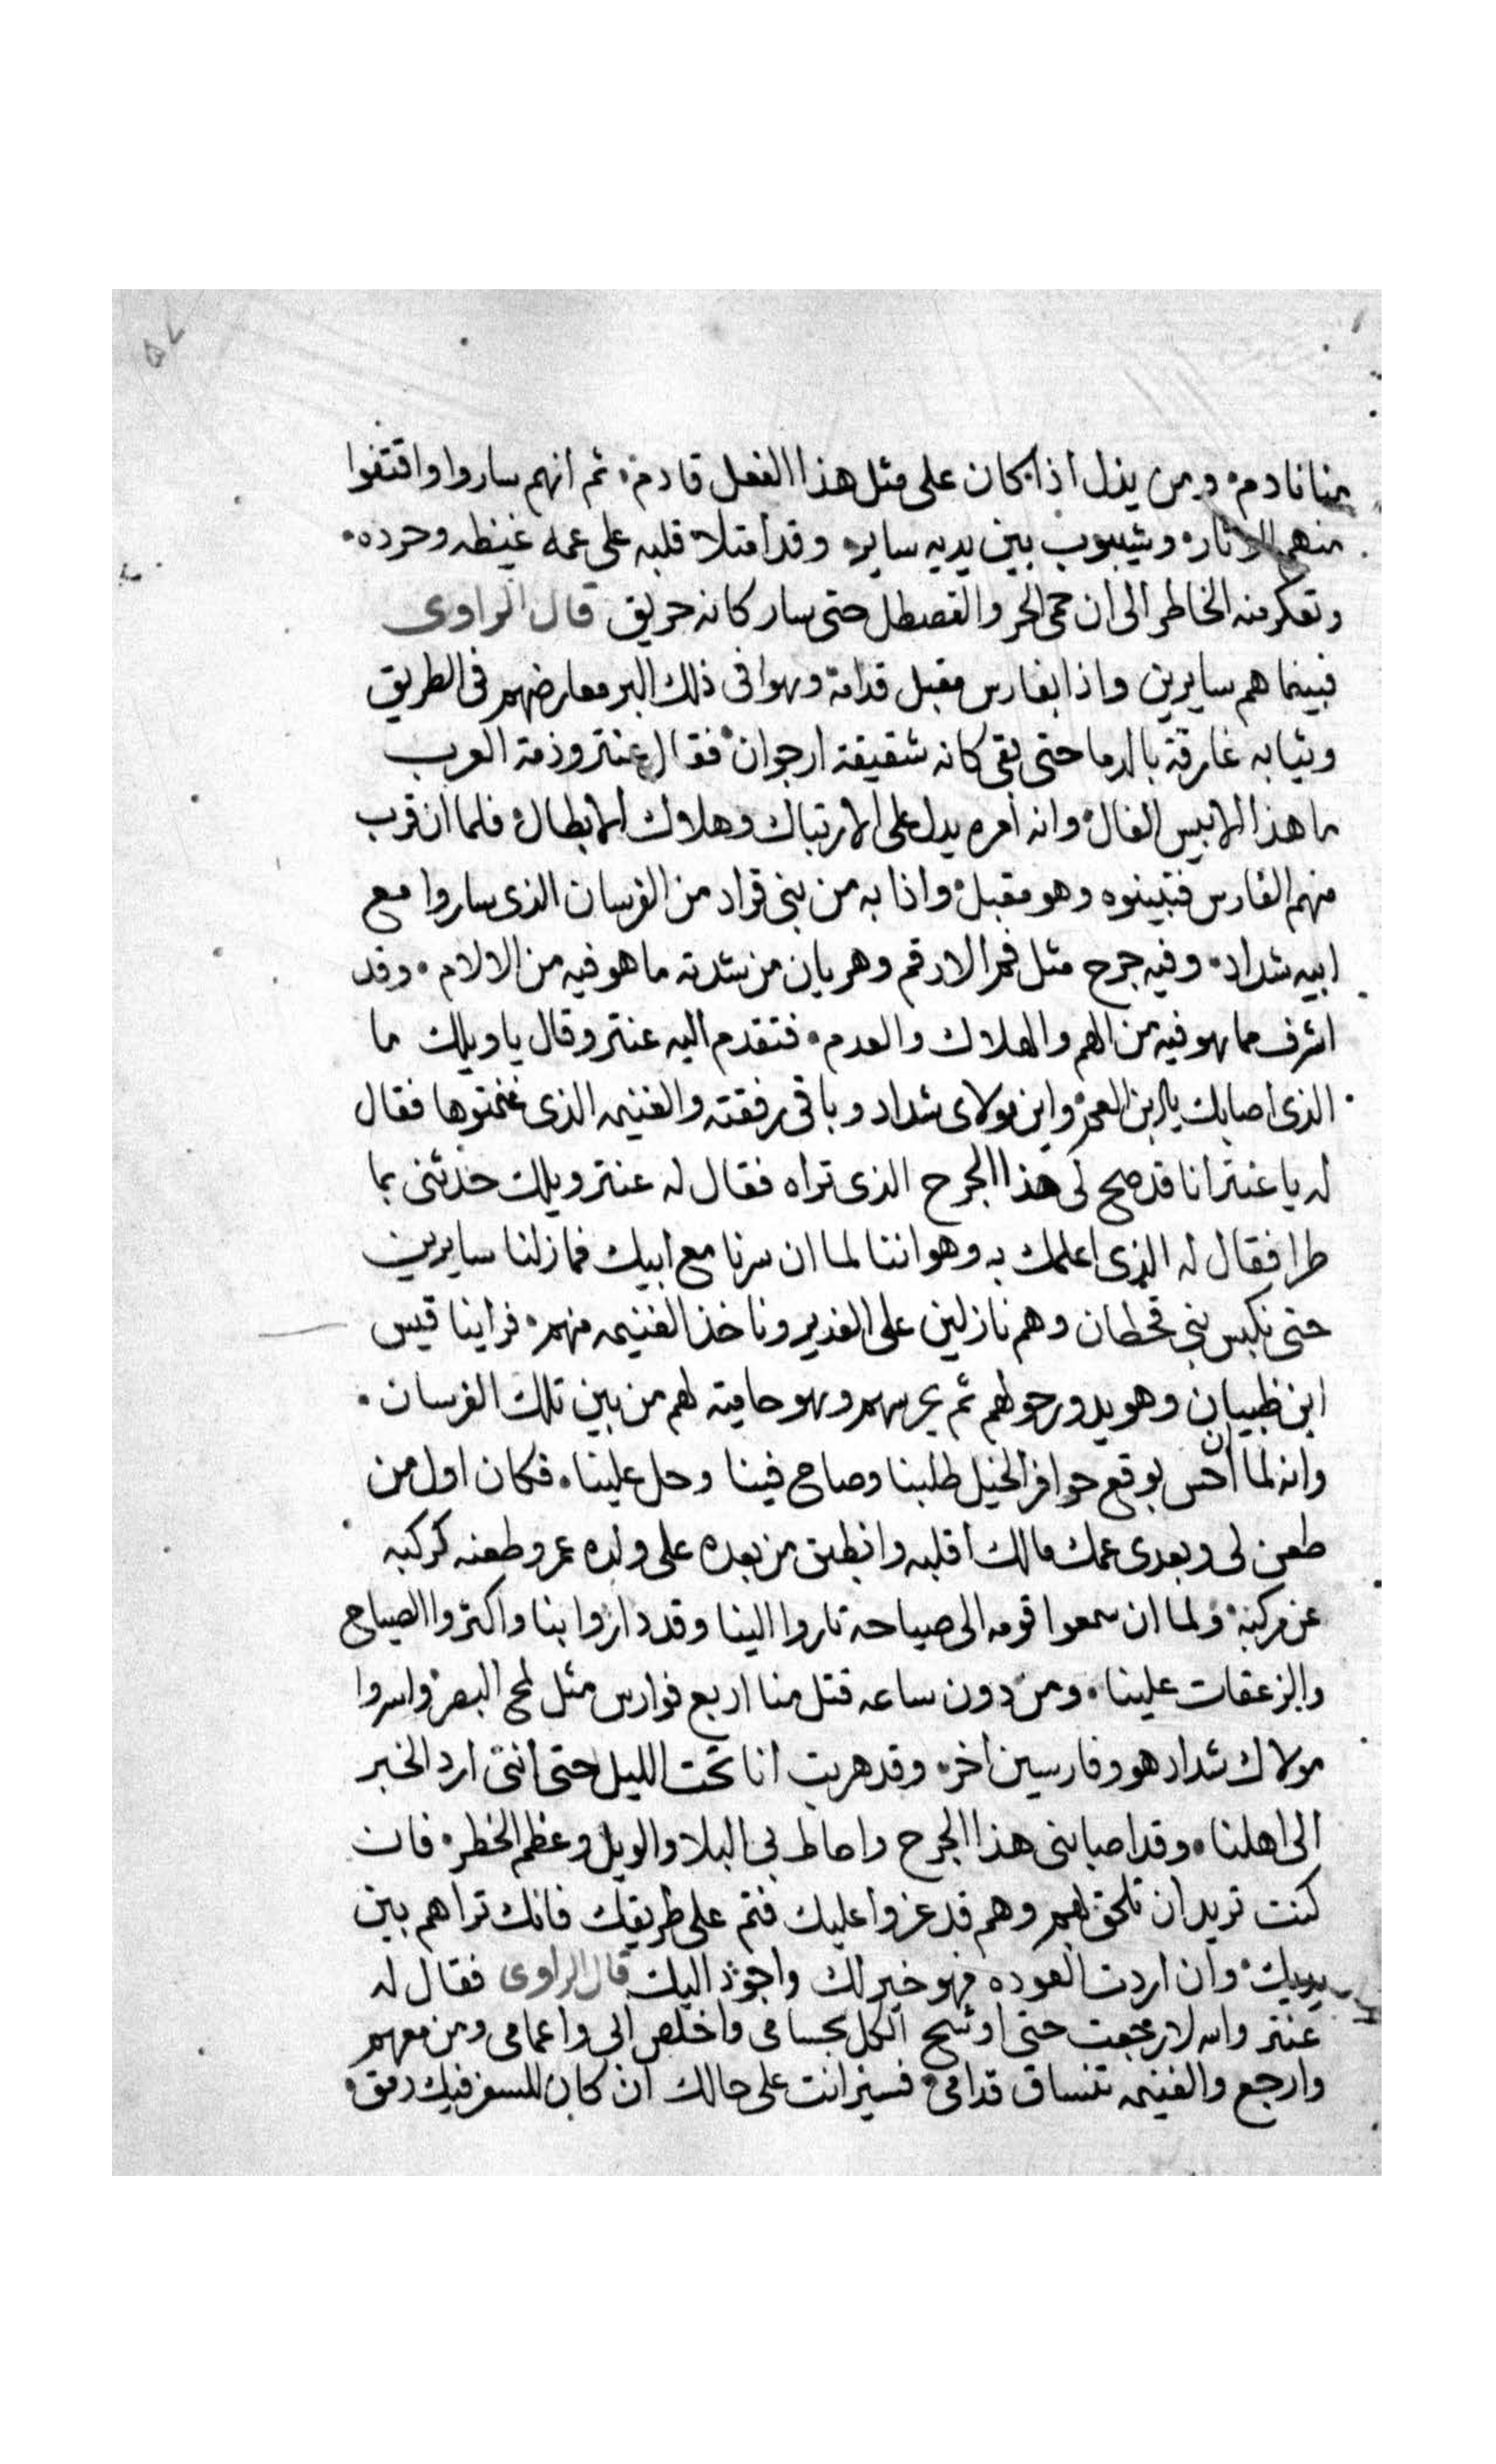 منا نادم۰ ومن يذل اذا كان على مثل هذا الفعل قادم۰ ثم انهم ساروا واقتفوا
منهم الاثار۰ وشيبوب بين يديه ساير۰ وقد امتلا قلبه على عمه غيظه وحرده۰
وتعكر منه الخاطر الى ان حمى الحر والقصطل حتى سار كانه حريق قال الراوى
فبينما هم سايرين واذا بفارس مقبل قدامة وهوا فى ذلك البر معارضهم فى الطريق
وثيابه غارقة بالدما حتى بقى كانه شقيقة ارجوان۰ فقال عنتر وذمة العرب
ما هذا الا بيس الفال۰ وانه امره يدل على الارتباك وهلاك الابطال۰ فلما ان قرب
منهم الفارس فتبينوه وهو مقبل۰ واذا به من بنى قراد من الفرسان الذى ساروا مع
ابيه شداد۰ وفيه جرح مثل فم الارقم وهربان من شدته ما هو فيه من الالام۰ وقد
اشرف مما هو فيه من الهم والهلاك والعدم۰ فتقدم اليه عنتر وقال يا ويلك ما
الذى اصابك يا ابن العم۰ واين مولاى شداد وباقى رفقته والغنيمه الذى غنمتوها فقال
له يا عنتر انا قد صح لى هذا الجرح الذى تراه فقال له عنتر ويلك حدثنى بما
طرا فقال له الذى اعلمك به وهو اننا لما ان سرنا مع ابيك فما زلنا سايرين
حتى نكبس بنى قحطان وهم نازلين على الغدير وناخذ الغنيمه منهم۰ فراينا قيس
ابن ظبيان وهو يدور حولهم ثم يحرسهم وهو حامية لهم من بين تلك الفرسان۰
وانه لما ان احس بوقع حوافر الخيل طلبنا وصاح فينا وحمل علينا۰ فكان اول من
طعن لى وبعدى عمك مالك اقلبه وانطبق من بعده على ولده عمر وطعنه كركبه
عن مركبه۰ ولما ان سمعوا قومه الى صياحه تاروا الينا وقد داروا بنا واكتروا الصياح
والزعقات علينا۰ ومن دون ساعه قتل منا اربع فوارس مثل لمح البصر۰ واسروا
مولاك شداد هو وفارسين اخر۰ وقد هربت انا تحت الليل حتى اننى ارد الخبر
الى اهلنا۰ وقد اصابنى هذا الجرح واحاط بى البلا والويل وعظم الخطر۰ فان
كنت تريد ان تلحق بهم وهم قد عزوا عليك فتم على طريقك فانك تراهم بين
يديك۰ وان اردت العوده فهو خير لك واجود اليك قال الراوى فقال له
عنتر والله لا رجعت حتى اوشح الكل بحسامى واخلص ابى واعمامى ومن معهم
وارجع والغنيمه تنساق قدامى۰ فسير انت على حالك ان كان للسفر فيك رمق۰